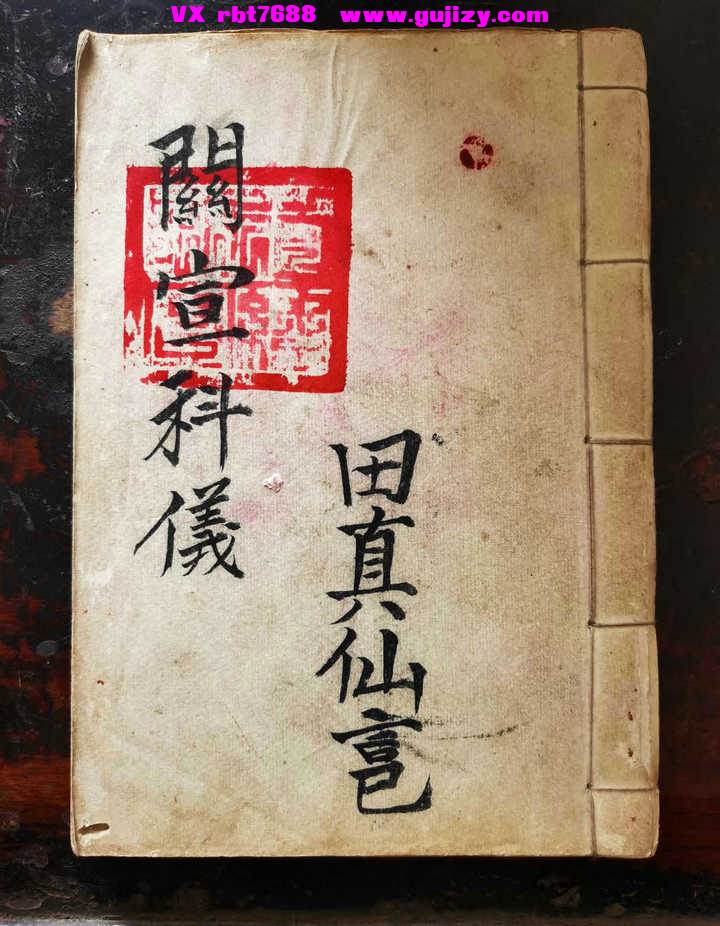 VX rbt7688 www.gujizy.com
關宣科儀
田真仙